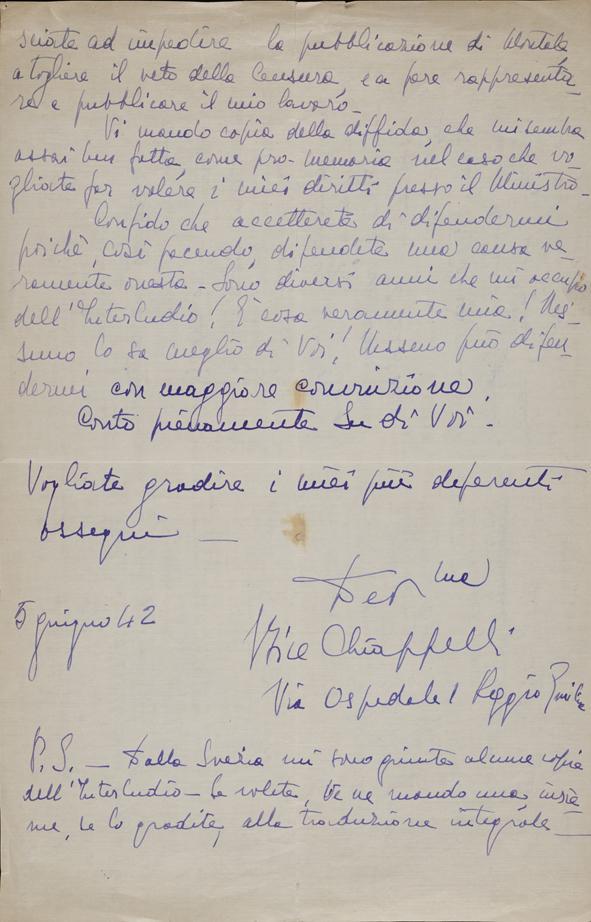 sciate ad impedire la pubblicazione di
a togliere il veto della Censura, e a fare rappresenta-
re e pubblicare il mio lavoro -
Vi mando copia della diffida, che mi sembra
assai ben fatta, come pro-memoria nel caso che vo-
gliate far valere i miei diritti presso il Ministro.
Confido che accetterete di difendermi
poichè, così facendo, difendete una causa ve-
ramente onesta - Sono diversi anni che mi occupo
dell'Interludio! È cosa veramente mia! Nes-
suno lo sa meglio di Voi! Nessuno può difen-
dermi con maggiore convinzione.
Conto pienamente su di Voi -
Vogliate gradire i miei più deferenti
ossequi —
Dev.ma
Chiappelli
Via Ospedale 1 Reggio Emilia
5 giugno 42
P.S. - Dalla Svezia mi sono giunte alcune copie
dell'Interludio - Se volete, Ve ne mando una insie-
me, se lo gradite, alla traduzione integrale -